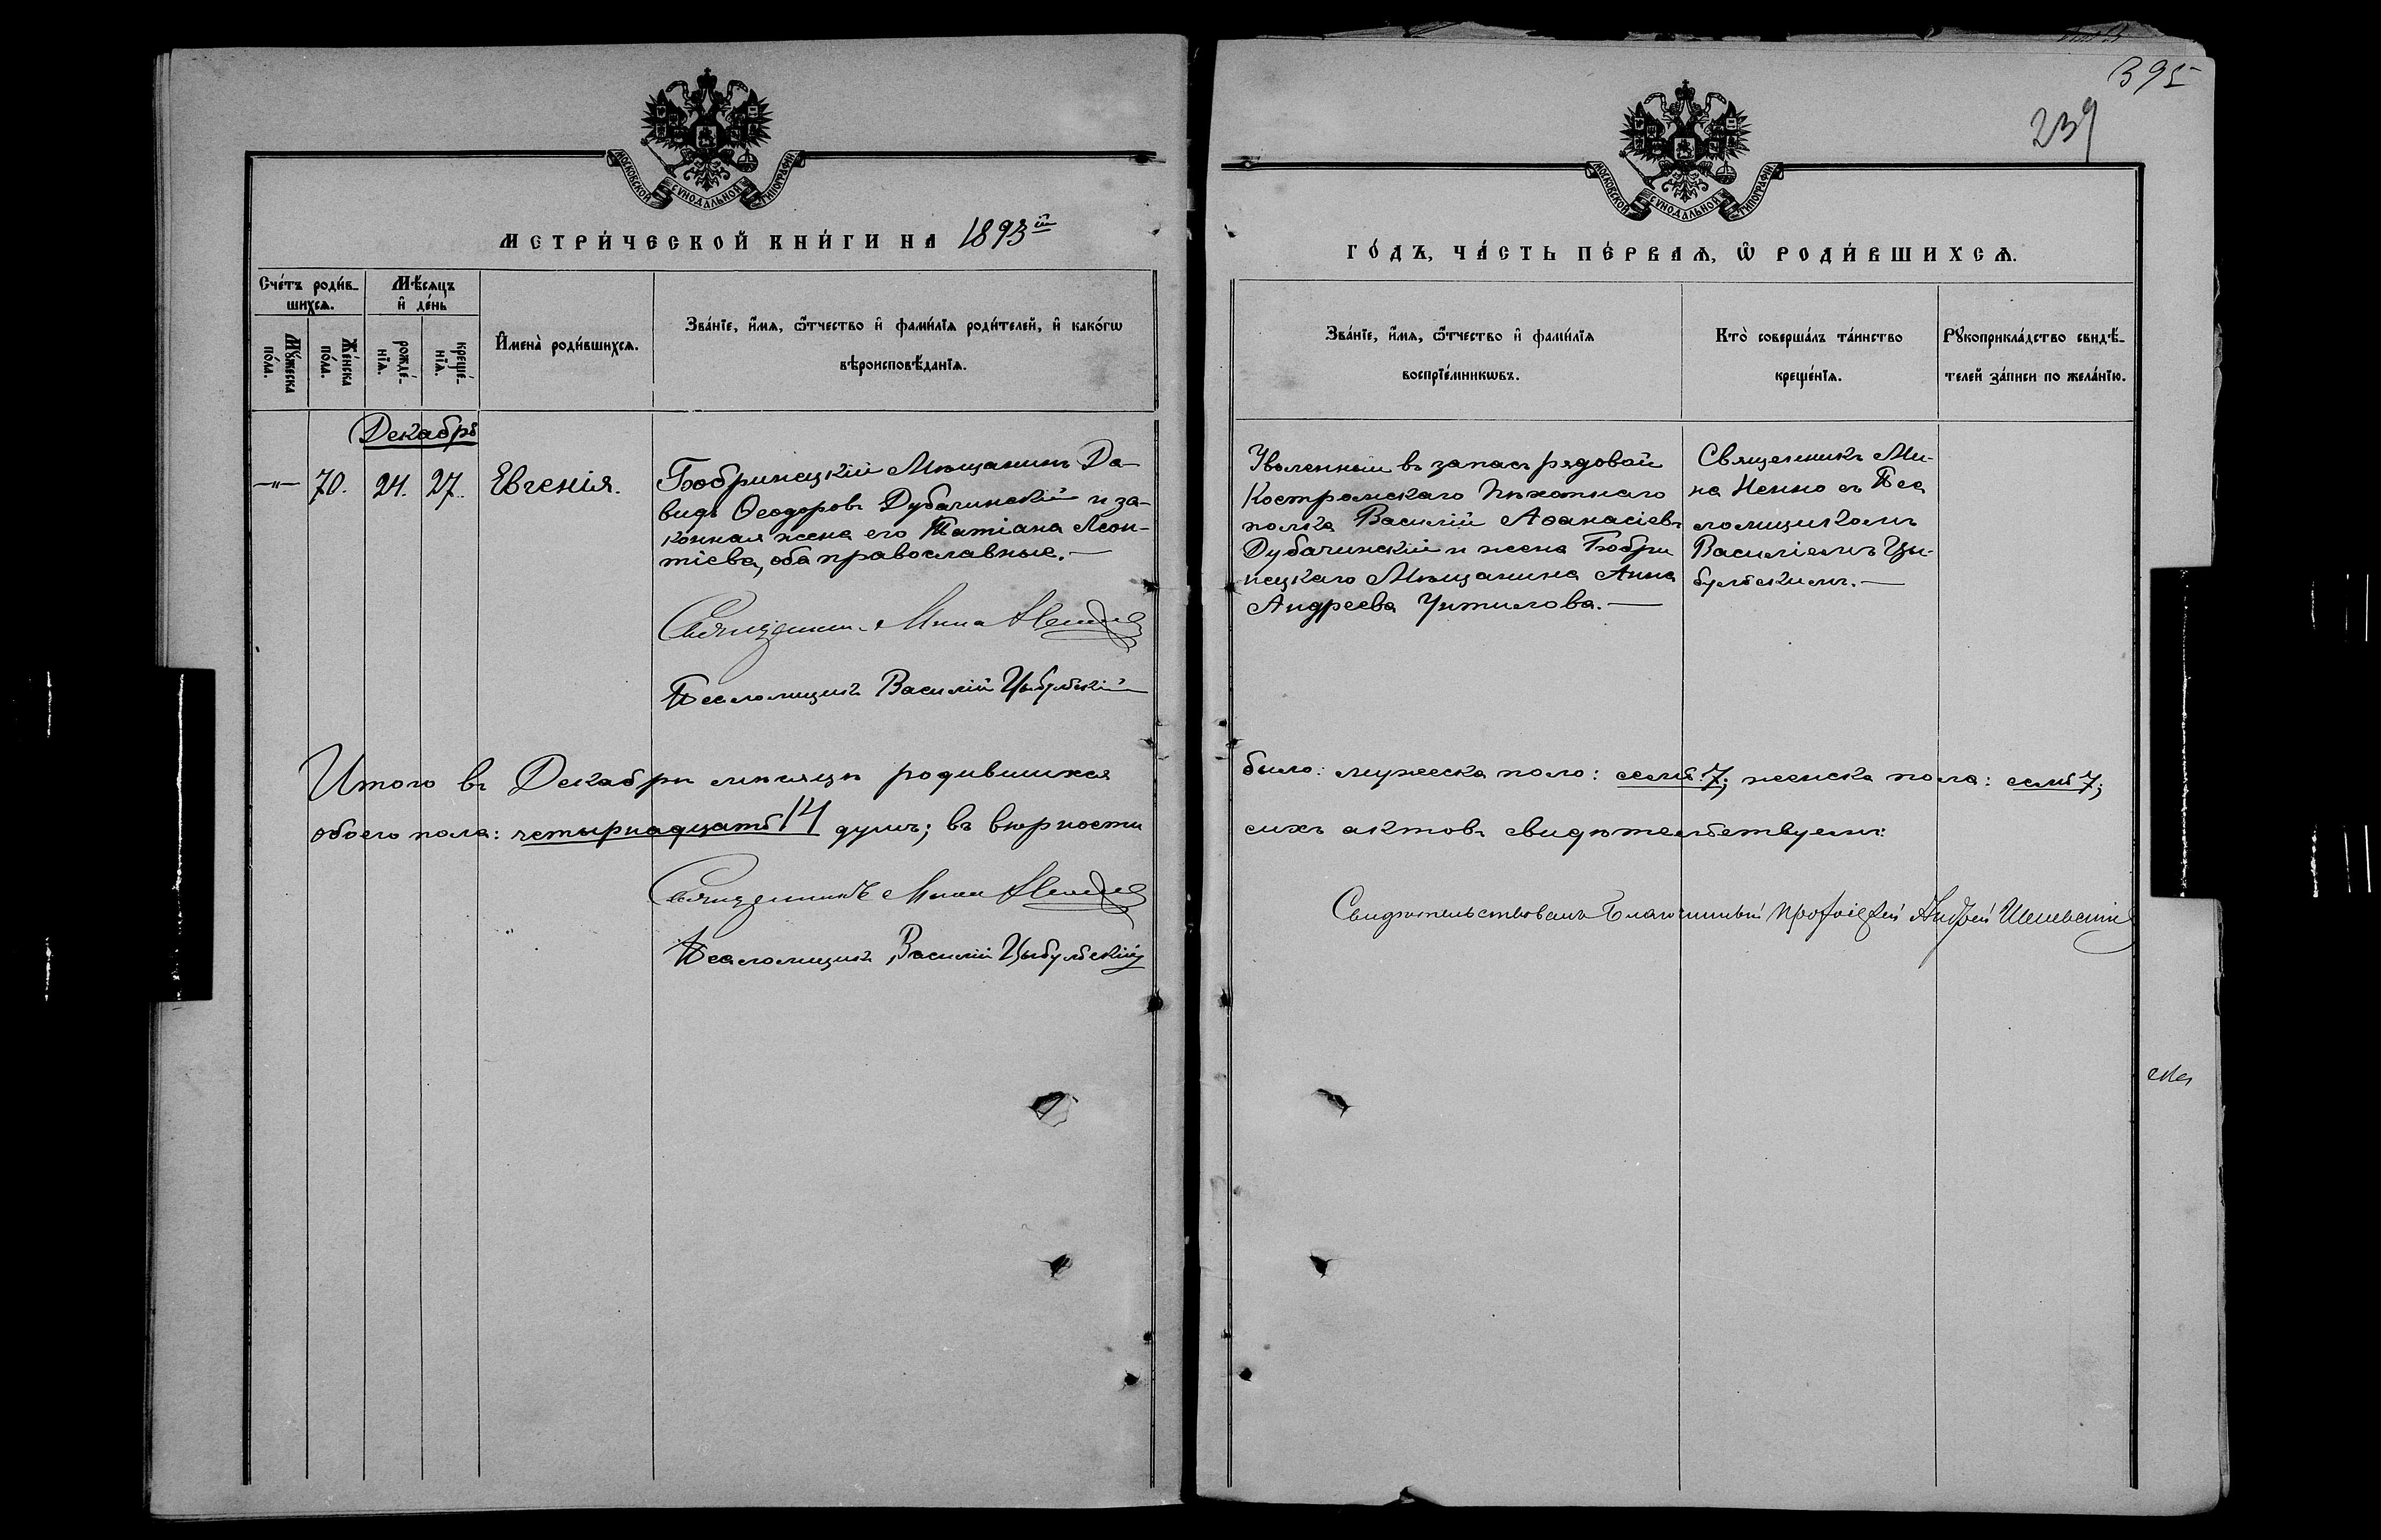 395
239
МОСКОВСКОЙ СѴНОДАЛЬНОЙ ТИПОГРАФІИ
МЕТРИ́ЧЕСКОЙ КНИ́ГИ НА 1893й
Сче́тъ роди́в-
шихсѧ.
Мѣ́сяцъ
и҆ де́нь
Мꙋ́жеска
по́ла.
Же́нска
по́ла.
рожде́-
нїѧ.
креще́-
нїѧ.
И҆мена̀ роди́вшихсѧ.
Зва́нїе, и҆́мѧ, ѻ҆́тчество и҆ фами́лїѧ роди́телей, и҆ како́гѡ
вѣроисповѣ́данїѧ.
Декабрь
—"— 70. 24. 27. Евгенія.
Бобринецкій Мѣщанинъ Да-
видъ Ѳеодоровъ Дубачинскій и за-
конная жена его Татіана Леон-
тіева, оба православные.—
Священникъ Мина Ненно
Псаломщикъ Василій Цыбульскій
Итого въ Декабрѣ мѣсяцѣ родившихся
обоего пола: четырнадцать 14 душъ; въ вѣрности
Священникъ Мина Ненно
Псаломщикъ Василій Цыбульскій
МОСКОВСКОЙ СѴНОДАЛЬНОЙ ТИПОГРАФІИ
ГО́ДЪ, ЧА́СТЬ ПЕ́РВАѦ, Ѡ҆ РОДИ́ВШИХСѦ.
Зва́нїе, и҆́мѧ, ѻ҆́тчество и҆ фами́лїѧ
воспрїе́мникѡвъ.
Кто̀ соверша́лъ та́инство
креще́нїѧ.
Рꙋкоприкла́дство свидѣ́-
телей за́писи по жела́нїю.
Уволенный въ запасъ рядовой
Костромскаго Пѣхотнаго
полка Василій Аѳанасіевъ
Дубачинскій и жена Бобри
нецкаго Мѣщанина Анна
Андреева Утилова.—
Священникъ Ми-
на Ненно съ Пса
ломщикомъ
Василіемъ Цы-
бульскимъ.—
было: мужеска поло: семь: 7; женска пола: семь 7;
сихъ актовъ свидѣтельствуемъ:
Свидѣтельствовалъ Благочинный Протоіерей Андрей